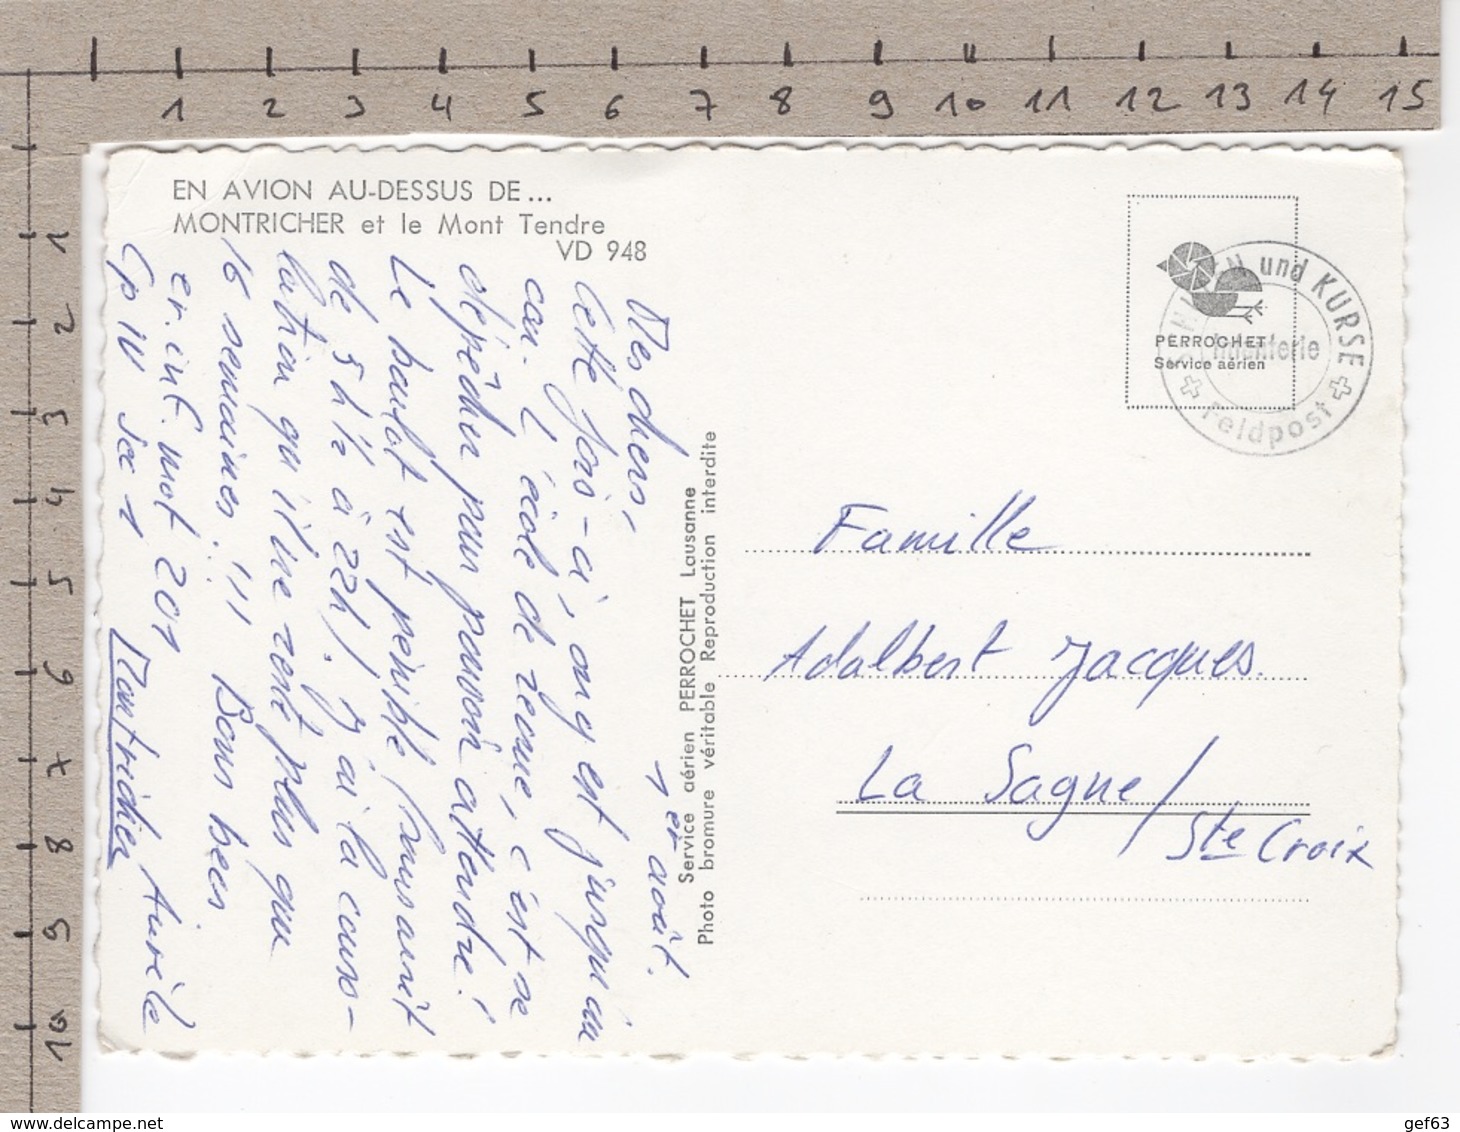 1 2 3 4 5 6 7 8 9 10 11 12 13 14 15
1 2 3 4 5 6 7 8 9 10
EN AVION AU-DESSUS DE...
MONTRICHER et le Mont Tendre
VD 948
1er août.
Mes chers,
Cette fois-ci, on y est jusqu'au
cou. L'école de recrue, c'est se
dépêcher pour pouvoir attendre!
Le boulot est pénible (sans arrêt
de 5h½ à 22h). J'ai la conso-
lation qu'il ne reste plus que
16 semaines!!! Bons becs
er. inf. mot 201 Aurèle
Cp IV Sec 1 Montricher
Service aérien PERROCHET Lausanne
Photo bromure véritable Reproduction interdite
PERROCHET
Service aérien
und KURSE
Infanterie
Feldpost
Famille
Adalbert Jacques.
La Sagne /
Ste Croix
gef63